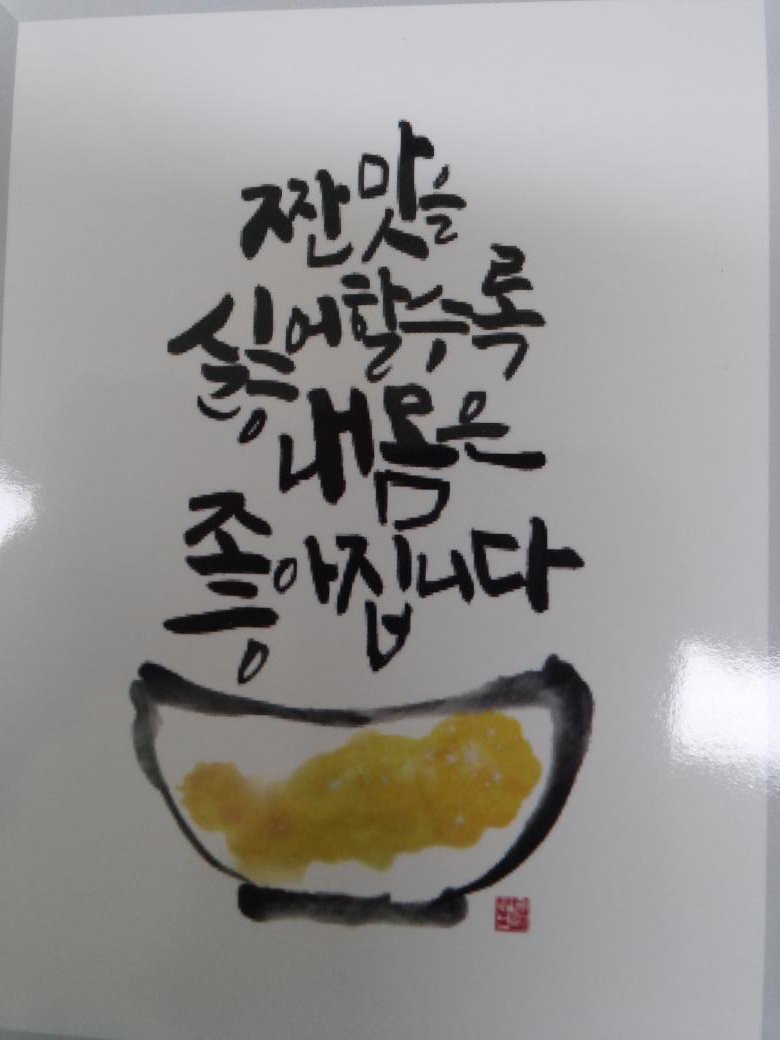 짠맛을
싫어할수록
내몸은
좋아집니다